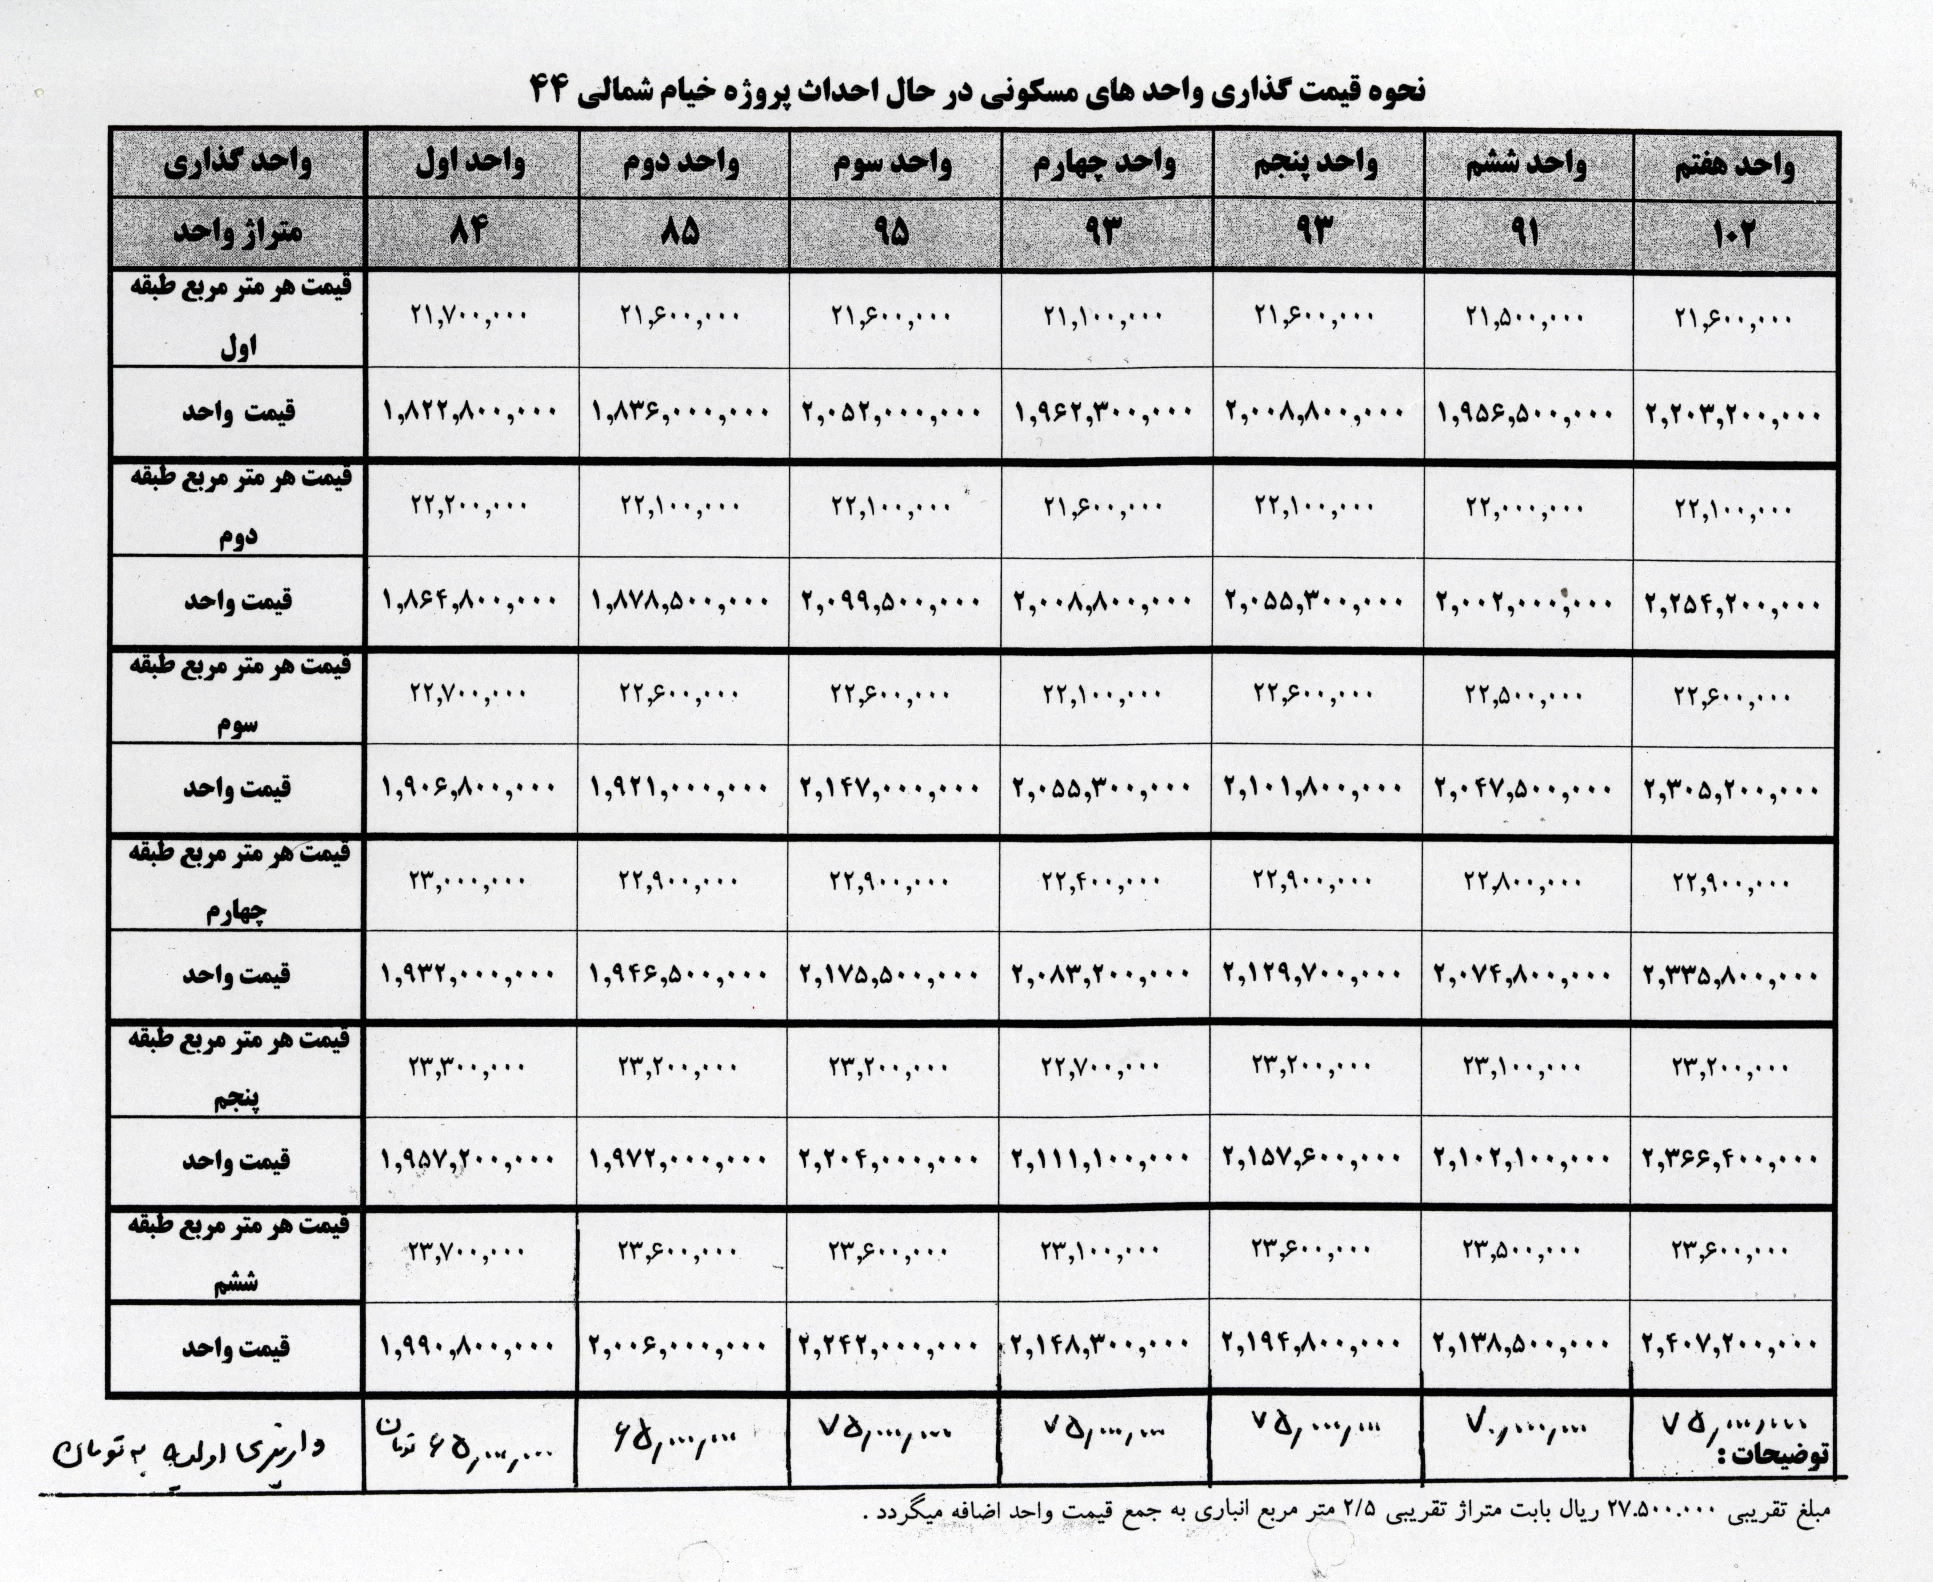 نحوه قیمت گذاری واحد های مسکونی در حال احداث پروژه خیام شمالی ۴۴
واحد گذاری واحد اول واحد دوم واحد سوم واحد چهارم واحد پنجم واحد ششم واحد هفتم
متراژ واحد ۸۴ ۸۵ ۹۵ ۹۳ ۹۳ ۹۱ ۱۰۲
قیمت هر متر مربع طبقه
اول ۲۱,۷۰۰,۰۰۰ ۲۱,۶۰۰,۰۰۰ ۲۱,۶۰۰,۰۰۰ ۲۱,۱۰۰,۰۰۰ ۲۱,۶۰۰,۰۰۰ ۲۱,۵۰۰,۰۰۰ ۲۱,۶۰۰,۰۰۰
قیمت واحد ۱,۸۲۲,۸۰۰,۰۰۰ ۱,۸۳۶,۰۰۰,۰۰۰ ۲,۰۵۲,۰۰۰,۰۰۰ ۱,۹۶۲,۳۰۰,۰۰۰ ۲,۰۰۸,۸۰۰,۰۰۰ ۱,۹۵۶,۵۰۰,۰۰۰ ۲,۲۰۳,۲۰۰,۰۰۰
قیمت هر متر مربع طبقه
دوم ۲۲,۲۰۰,۰۰۰ ۲۲,۱۰۰,۰۰۰ ۲۲,۱۰۰,۰۰۰ ۲۱,۶۰۰,۰۰۰ ۲۲,۱۰۰,۰۰۰ ۲۲,۰۰۰,۰۰۰ ۲۲,۱۰۰,۰۰۰
قیمت واحد ۱,۸۶۴,۸۰۰,۰۰۰ ۱,۸۷۸,۵۰۰,۰۰۰ ۲,۰۹۹,۵۰۰,۰۰۰ ۲,۰۰۸,۸۰۰,۰۰۰ ۲,۰۵۵,۳۰۰,۰۰۰ ۲,۰۰۲,۰۰۰,۰۰۰ ۲,۲۵۴,۲۰۰,۰۰۰
قیمت هر متر مربع طبقه
سوم ۲۲,۷۰۰,۰۰۰ ۲۲,۶۰۰,۰۰۰ ۲۲,۶۰۰,۰۰۰ ۲۲,۱۰۰,۰۰۰ ۲۲,۶۰۰,۰۰۰ ۲۲,۵۰۰,۰۰۰ ۲۲,۶۰۰,۰۰۰
قیمت واحد ۱,۹۰۶,۸۰۰,۰۰۰ ۱,۹۲۱,۰۰۰,۰۰۰ ۲,۱۴۷,۰۰۰,۰۰۰ ۲,۰۵۵,۳۰۰,۰۰۰ ۲,۱۰۱,۸۰۰,۰۰۰ ۲,۰۴۷,۵۰۰,۰۰۰ ۲,۳۰۵,۲۰۰,۰۰۰
قیمت هر متر مربع طبقه
چهارم ۲۳,۰۰۰,۰۰۰ ۲۲,۹۰۰,۰۰۰ ۲۲,۹۰۰,۰۰۰ ۲۲,۴۰۰,۰۰۰ ۲۲,۹۰۰,۰۰۰ ۲۲,۸۰۰,۰۰۰ ۲۲,۹۰۰,۰۰۰
قیمت واحد ۱,۹۳۲,۰۰۰,۰۰۰ ۱,۹۴۶,۵۰۰,۰۰۰ ۲,۱۷۵,۵۰۰,۰۰۰ ۲,۰۸۳,۲۰۰,۰۰۰ ۲,۱۲۹,۷۰۰,۰۰۰ ۲,۰۷۴,۸۰۰,۰۰۰ ۲,۳۳۵,۸۰۰,۰۰۰
قیمت هر متر مربع طبقه
پنجم ۲۳,۳۰۰,۰۰۰ ۲۳,۲۰۰,۰۰۰ ۲۳,۲۰۰,۰۰۰ ۲۲,۷۰۰,۰۰۰ ۲۳,۲۰۰,۰۰۰ ۲۳,۱۰۰,۰۰۰ ۲۳,۲۰۰,۰۰۰
قیمت واحد ۱,۹۵۷,۲۰۰,۰۰۰ ۱,۹۷۲,۰۰۰,۰۰۰ ۲,۲۰۴,۰۰۰,۰۰۰ ۲,۱۱۱,۱۰۰,۰۰۰ ۲,۱۵۷,۶۰۰,۰۰۰ ۲,۱۰۲,۱۰۰,۰۰۰ ۲,۳۶۶,۴۰۰,۰۰۰
قیمت هر متر مربع طبقه
ششم ۲۳,۷۰۰,۰۰۰ ۲۳,۶۰۰,۰۰۰ ۲۳,۶۰۰,۰۰۰ ۲۳,۱۰۰,۰۰۰ ۲۳,۶۰۰,۰۰۰ ۲۳,۵۰۰,۰۰۰ ۲۳,۶۰۰,۰۰۰
قیمت واحد ۱,۹۹۰,۸۰۰,۰۰۰ ۲,۰۰۶,۰۰۰,۰۰۰ ۲,۲۴۲,۰۰۰,۰۰۰ ۲,۱۴۸,۳۰۰,۰۰۰ ۲,۱۹۴,۸۰۰,۰۰۰ ۲,۱۳۸,۵۰۰,۰۰۰ ۲,۴۰۷,۲۰۰,۰۰۰
واریزی اولیه به تومان ۶۵,۰۰۰,۰۰۰ تومان ۶۵,۰۰۰,۰۰۰ ۷۵,۰۰۰,۰۰۰ ۷۵,۰۰۰,۰۰۰ ۷۵,۰۰۰,۰۰۰ ۷۰,۰۰۰,۰۰۰ ۷۵,۰۰۰,۰۰۰
توضیحات :
مبلغ تقریبی ۲۷.۵۰۰.۰۰۰ ریال بابت متراژ تقریبی ۲/۵ متر مربع انباری به جمع قیمت واحد اضافه میگردد .